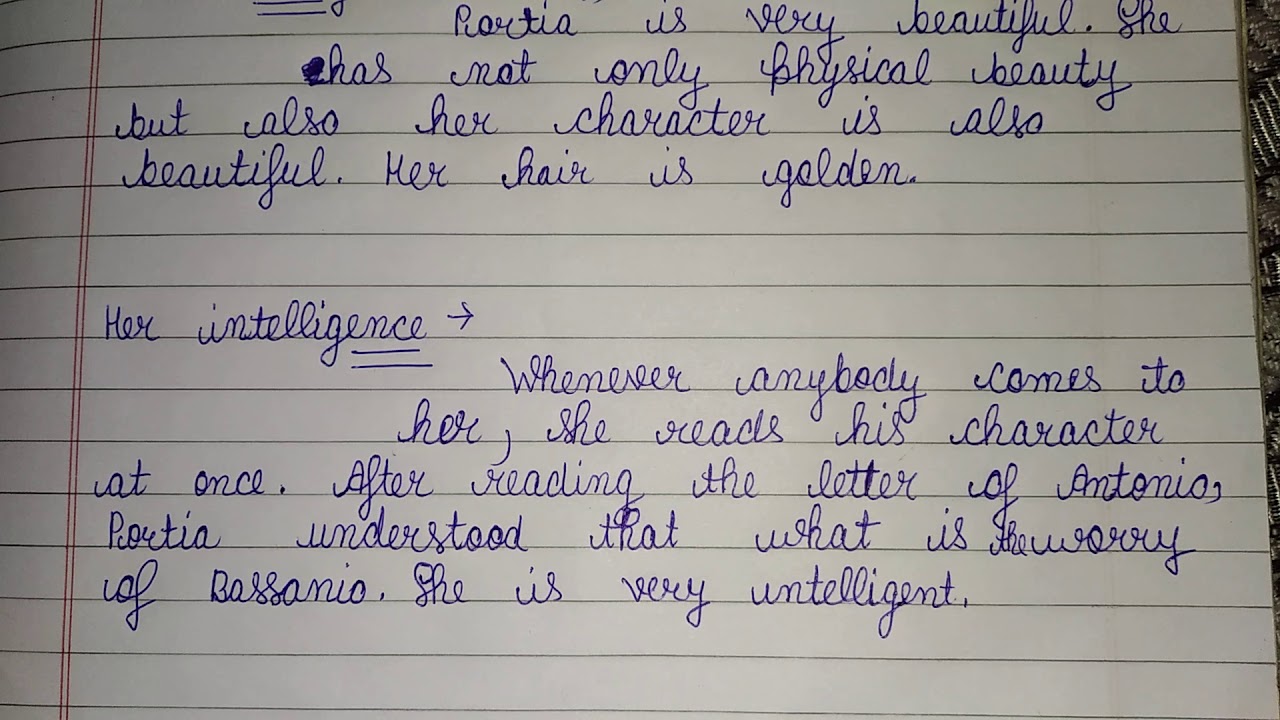 Portia is very beautiful. She
has not only physical beauty
but also her character is also
beautiful. Her hair is golden.
Her intelligence →
Whenever anybody comes to
her, she reads his character
at once. After reading the letter of Antonio,
Portia understood that what is the worry
of Bassanio. She is very intelligent.